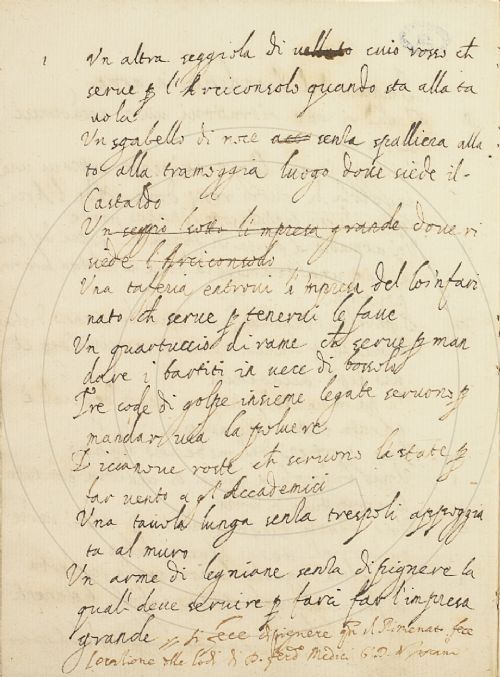 Un altra seggiola di uelluto cuio rosso ch
serue p l'Arciconsolo quando sta alla ta
uola
Un sgabello di noce acc senza spalliera alla
to alla tramoggia luogo doue siede il
Castaldo
Un seggio sotto l'impresa grande doue ri
siede l'Arciconsolo
Una taferia entroui l'impresa del lo'nfari
nato ch serue p tenerui le faue
Un quartuccio di rame ch serue p man
dare i partiti in uece di bossolo
Tre code di golpe insieme legate seruono p
mandar uia la poluere
Diccianoue roste ch seruono la state p
far uento a gl'Accademici
Una tauola lunga senza trespoli appoggia
ta al muro
Un arme di legniane senza dipignere la
quale deue seruire p farci far l'impresa
grande si fece dipignere qn il Rimenato fece
l'oratione delle lodi di D. Ferd.o Medici G. D. di Toscana